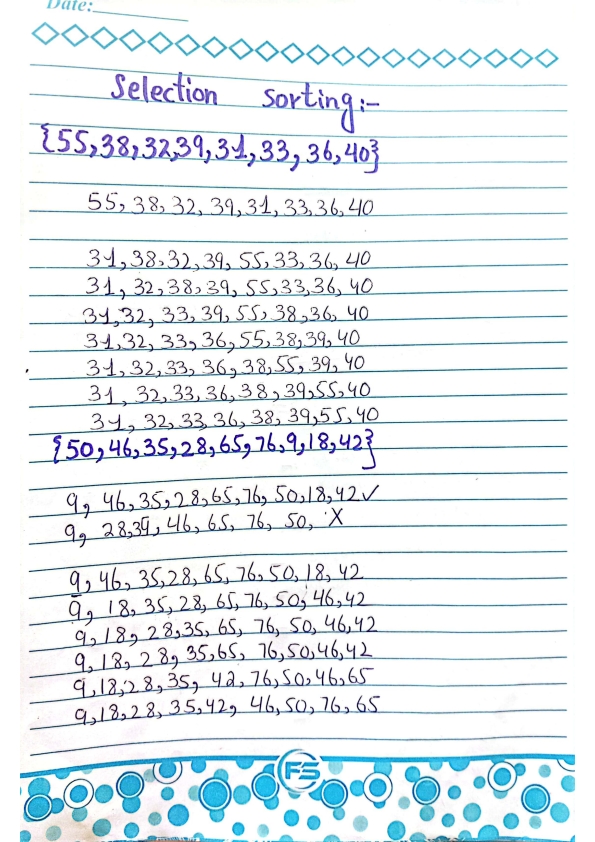 Date:
Selection Sorting:-
{55,38,32,39,31,33,36,40}
55,38,32,39,31,33,36,40
31,38,32,39,55,33,36,40
31,32,38,39,55,33,36,40
31,32,33,39,55,38,36,40
31,32,33,36,55,38,39,40
31,32,33,36,38,55,39,40
31,32,33,36,38,39,55,40
31,32,33,36,38,39,55,40
{50,46,35,28,65,76,9,18,42}
9,46,35,28,65,76,50,18,42✓
9,28,39,46,65,76,50, X
9,46,35,28,65,76,50,18,42
9,18,35,28,65,76,50,46,42
9,18,28,35,65,76,50,46,42
9,18,28,35,65,76,50,46,42
9,18,28,35,42,76,50,46,65
9,18,28,35,42,46,50,76,65
FS